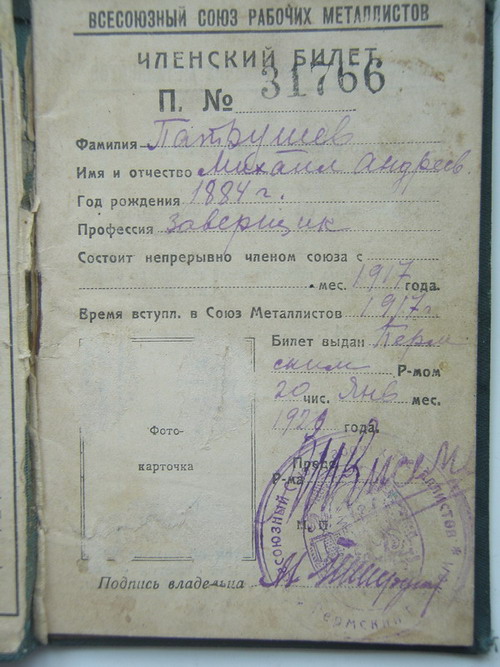 ВСЕСОЮЗНЫЙ СОЮЗ РАБОЧИХ МЕТАЛЛИСТОВ
ЧЛЕНСКИЙ БИЛЕТ
П. № 31766
Фамилия Патрушев
Имя и отчество Михаил Андреев.
Год рождения 1884 г.
Профессия
Состоит непрерывно членом союза с
мес. 1917 года.
Время вступл. в Союз Металлистов 1917 г.
Билет выдан Перм
ским Р-мом
20 чис. Янв мес.
года.
Фото-
карточка
Пред.
Р-ма
М. П.
Подпись владельца